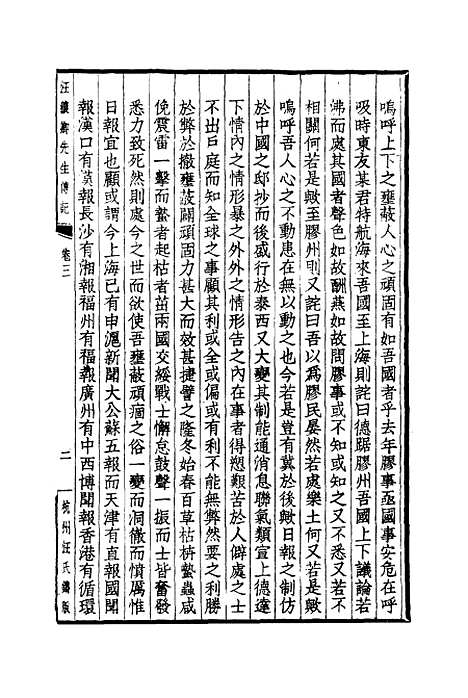 嗚呼上下之壅蔽人心之頑固有如吾國者乎去年膠事亟國事安危在呼
吸時東友某君特航海來吾國至上海則詫曰德踞膠州吾國上下議論若
沸而處其國者聲色如故酬燕如故問膠事或不知或知之又不悉又若不
相關何若是歟至膠州則又詫曰吾以爲膠民晏然若處樂土何又若是歟
嗚呼吾人心之不動患在無以動之也今若是豈有冀於後歟日報之制仿
於中國之邸抄而後盛行於泰西又大變其制能通消息聯氣類宣上德達
下情內之情形暴之外外之情形告之內在事者得愬艱苦於人僻處之士
不出戶庭而知全球之事顧其利或全或偏或有利不能無弊然要之利勝
於弊於撤壅蔽闢頑固力甚大而效甚捷譬之隆冬始春百草枯槁蟄蟲咸
俛震雷一擊而蟄者起枯者茁兩國交綏戰士懈怠鼓聲一振而士皆奮發
悉力致死然則處今之世而欲使吾壅蔽頑痼之俗一變而洞徹而憤厲惟
日報宜也顧或謂今上海已有申滬新聞大公蘇五報而天津有直報國聞
報漢口有漢報長沙有湘報福州有福報廣州有中西博聞報香港有循環
汪穰卿先生傳記
卷三
二
杭州汪氏鑄版